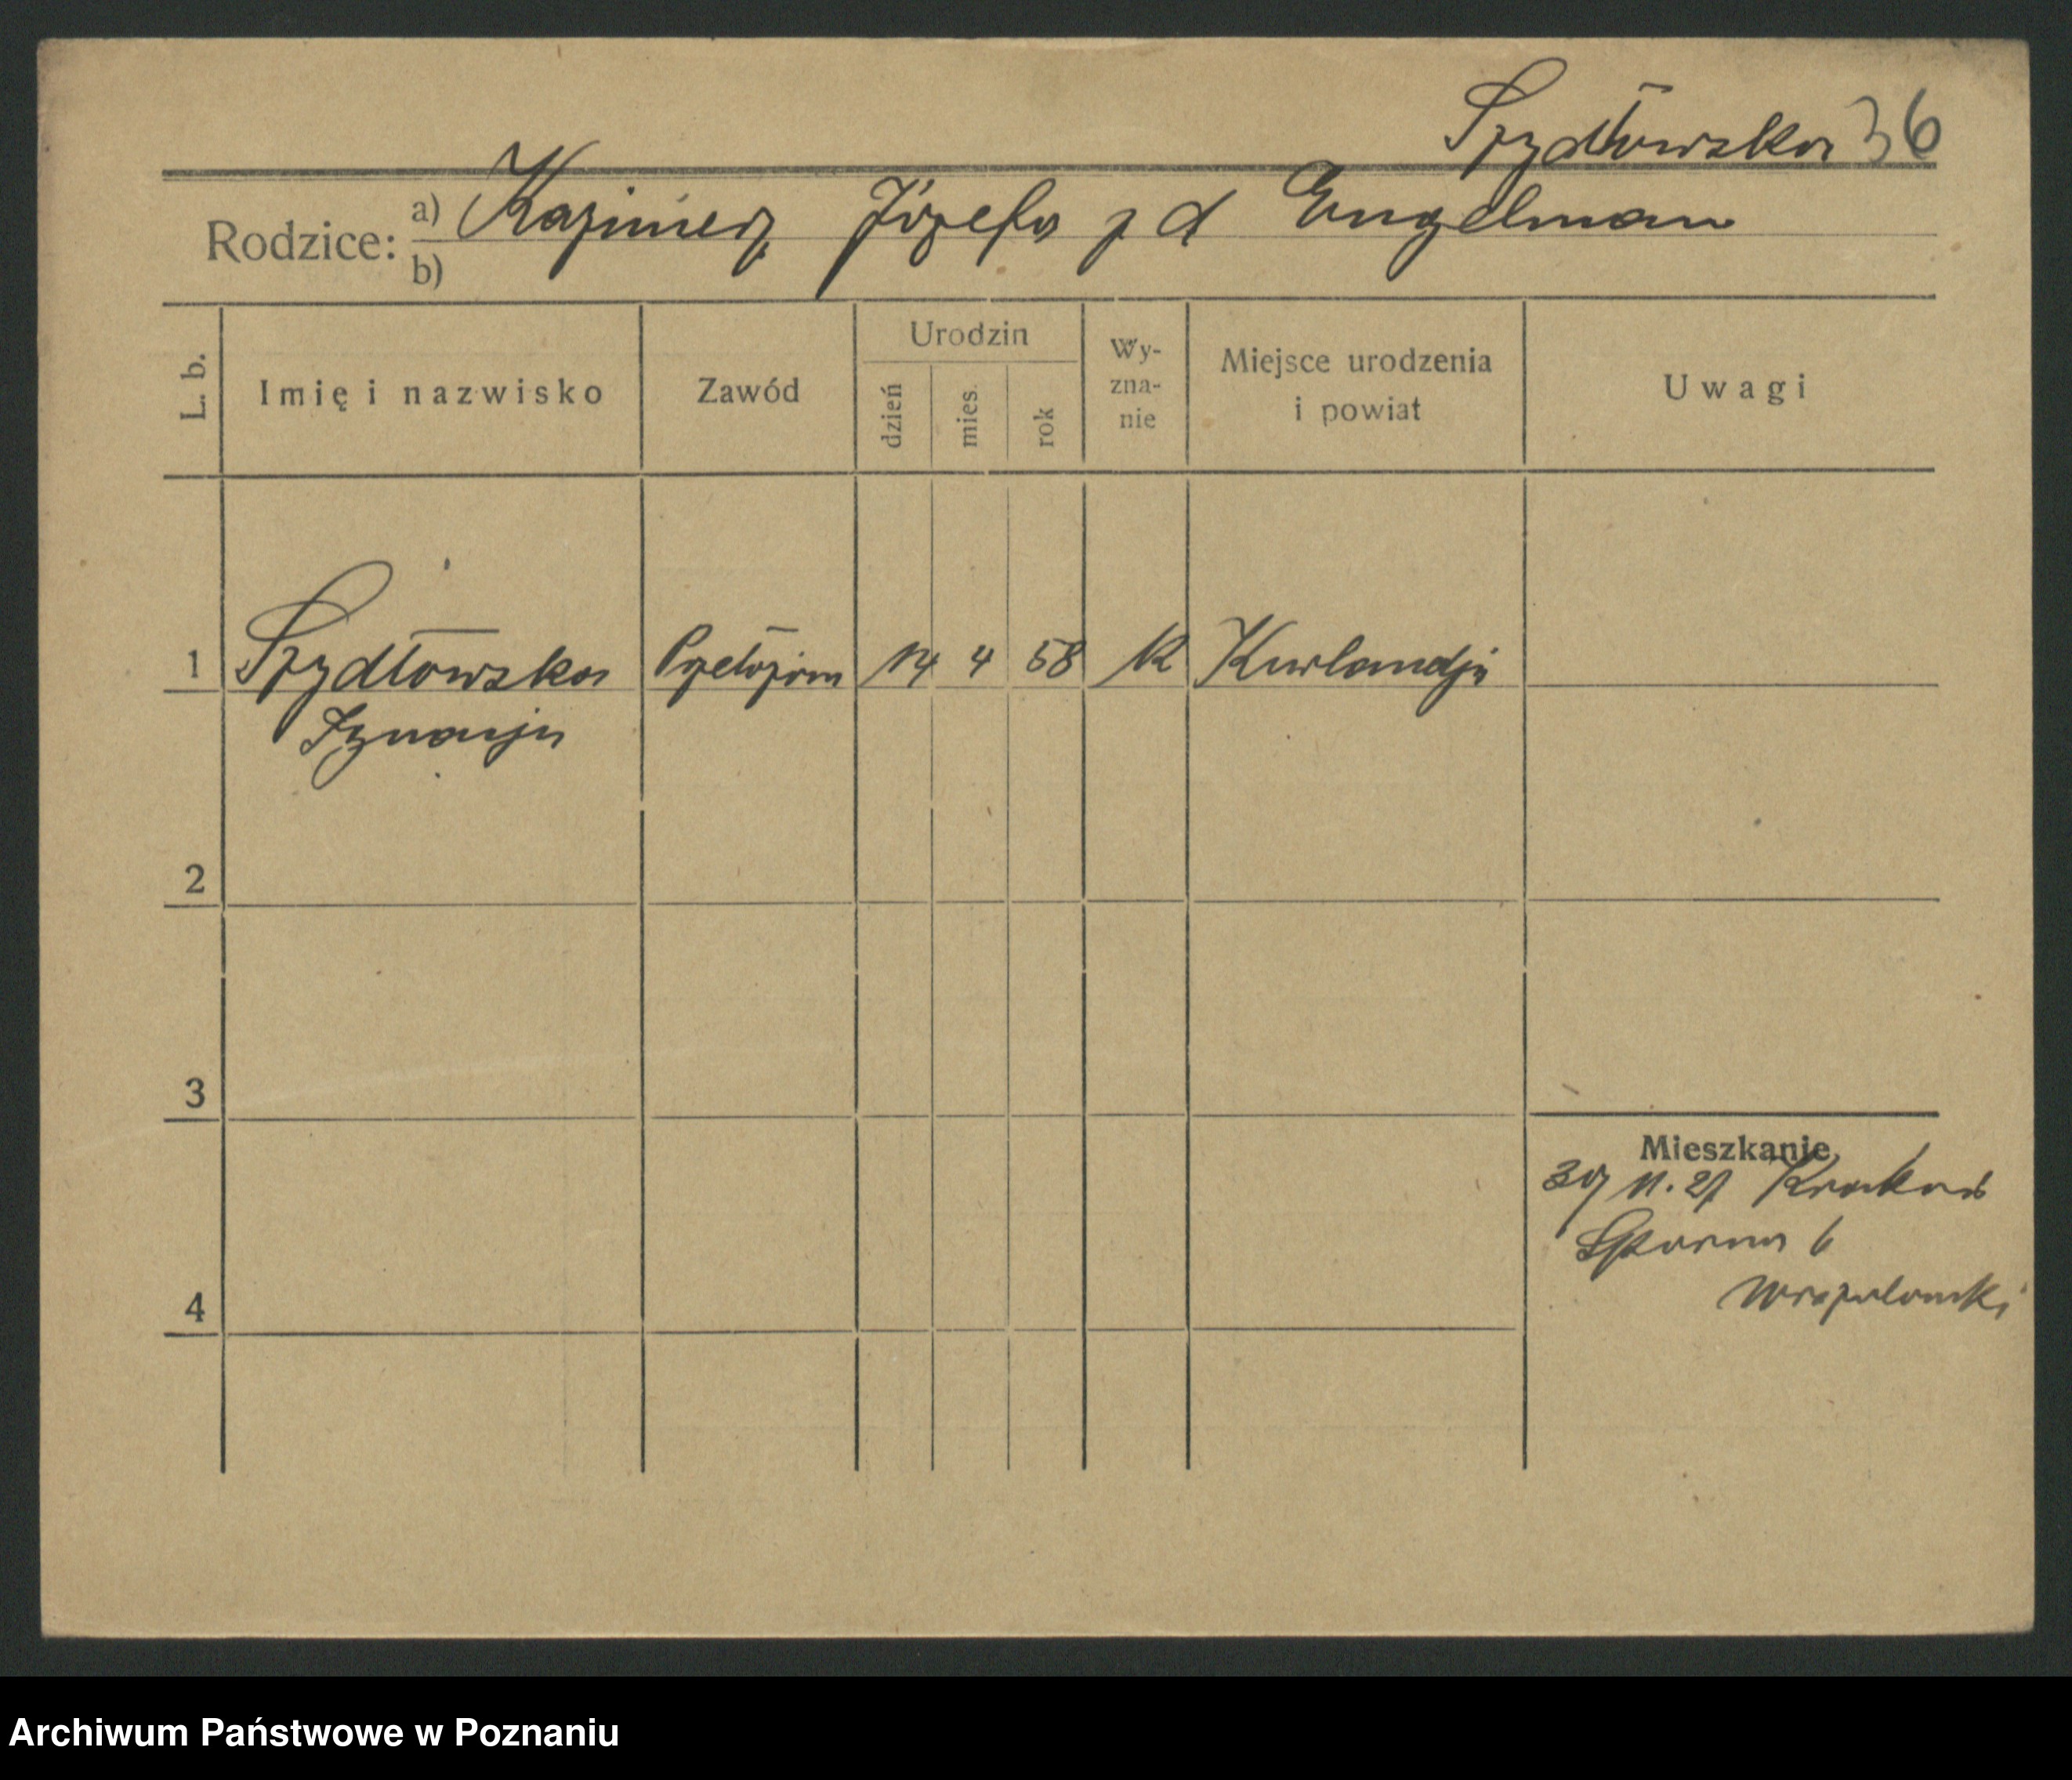 Szydłowska 36
Rodzice: a) Kazimierz Józefa z d Engelman
b)
L. b.
Imię i nazwisko
Zawód
Urodzin
dzień
mies.
rok
Wy-
zna-
nie
Miejsce urodzenia
i powiat
Uwagi
1 Szydłowska Przełożona 14 4 58 K Kurlandja
2
3
Mieszkanie
11. 27 Kraków
6
4
Archiwum Państwowe w Poznaniu